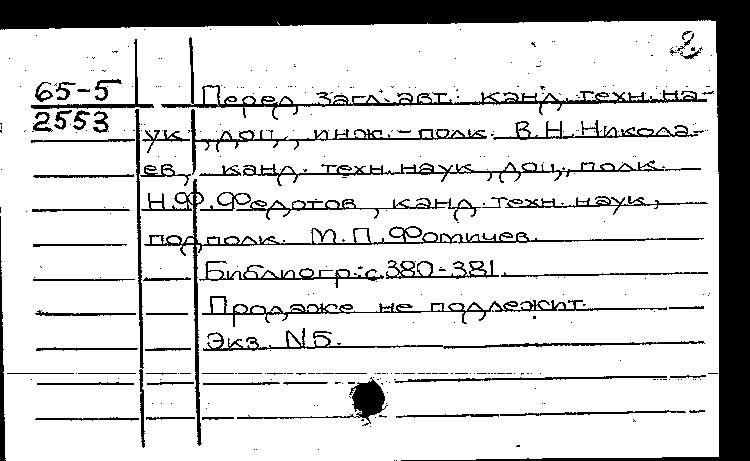 2
65-5
2553
Перед загл. авт.: канд. техн. на-
ук, доц., инж.-полк. В.Н. Никола-
ев, канд. техн. наук, доц., полк.
Н.Ф. Федотов, канд. техн. наук,
подполк. М.П. Фомичев.
Библиогр.: с. 380-381.
Продаже не подлежит.
Экз. N5.